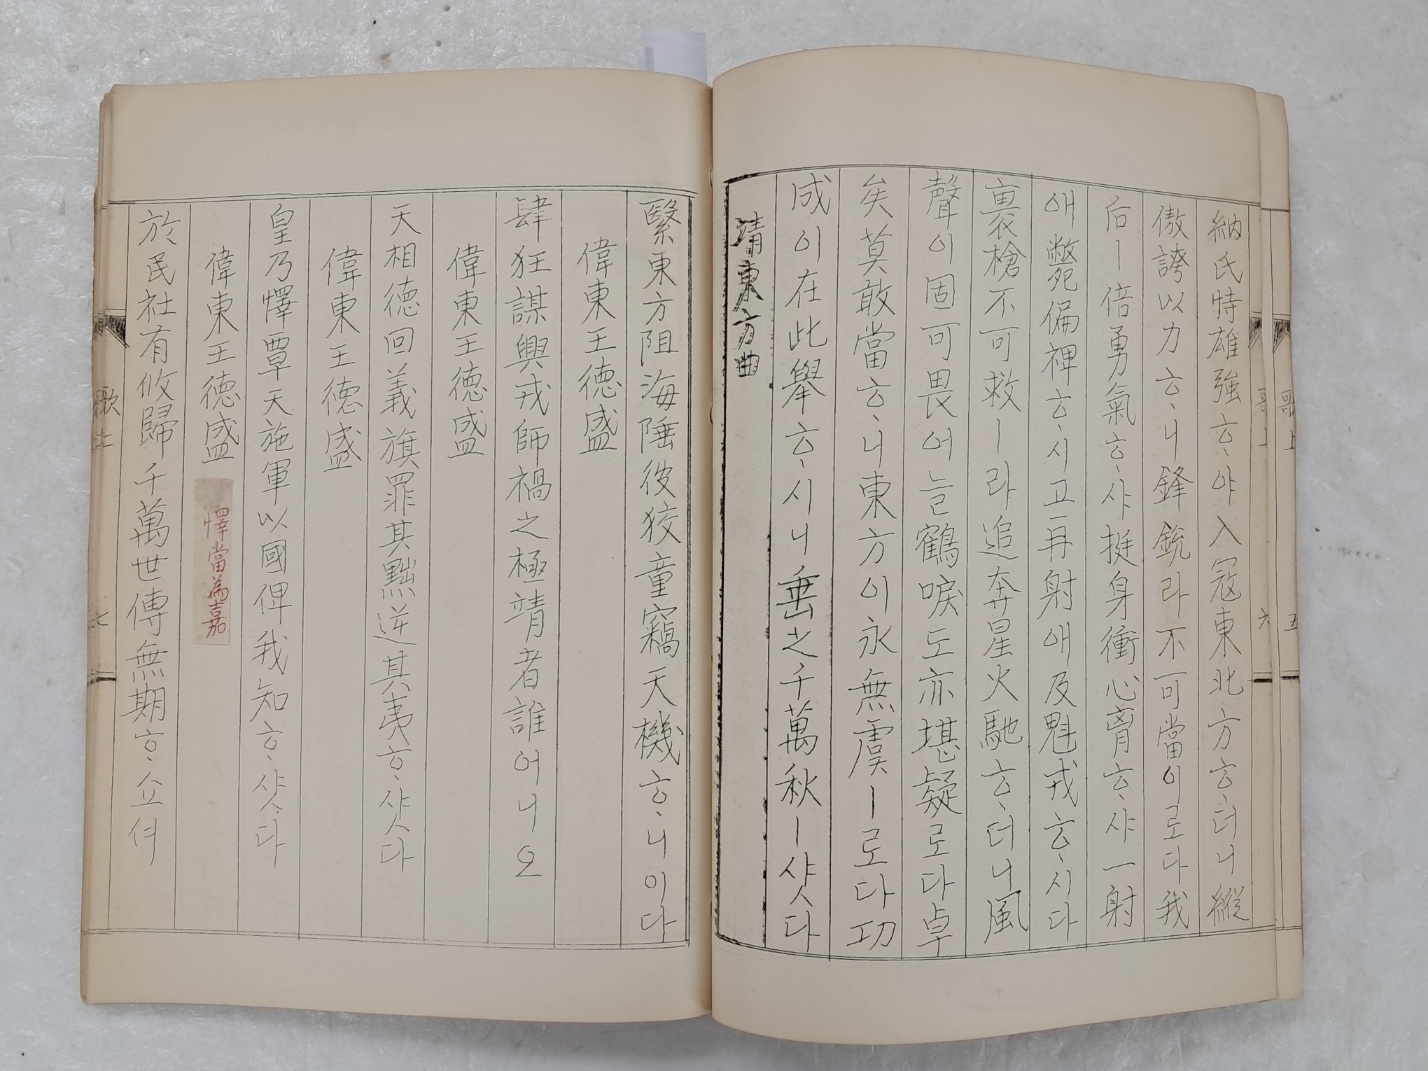 歌上 五
歌上 六
納氏恃雄強ᄒᆞ야入寇東北方ᄒᆞ더니縱
傲誇以力ᄒᆞ니鋒銳라不可當이로다我
后ㅣ倍勇氣ᄒᆞ샤挺身衝心ᄒᆞ샤一射
애斃偏裨ᄒᆞ시고再射애及魁戎ᄒᆞ시다
裹槍不可救ㅣ라追奔星火馳ᄒᆞ더니風
聲이固可畏어늘鶴唳도亦堪疑로다卓
矣莫敢當ᄒᆞ니東方이永無虞ㅣ로다功
成이在此擧ᄒᆞ시니垂之千萬秋ㅣ샷다
靖東方曲
繄東方阻海陲彼狡童竊天機ᄒᆞ니이다
偉東王德盛
肆狂謀興戎師禍之極靖者誰어니오
偉東王德盛
天相德回義旗罪其黜逆其夷ᄒᆞ샷다
偉東王德盛
皇乃懌覃天施軍以國俾我知ᄒᆞ샷다
偉東王德盛
懌當為嘉
於民社有攸歸千萬世傳無期ᄒᆞ쇼셔
歌上 七